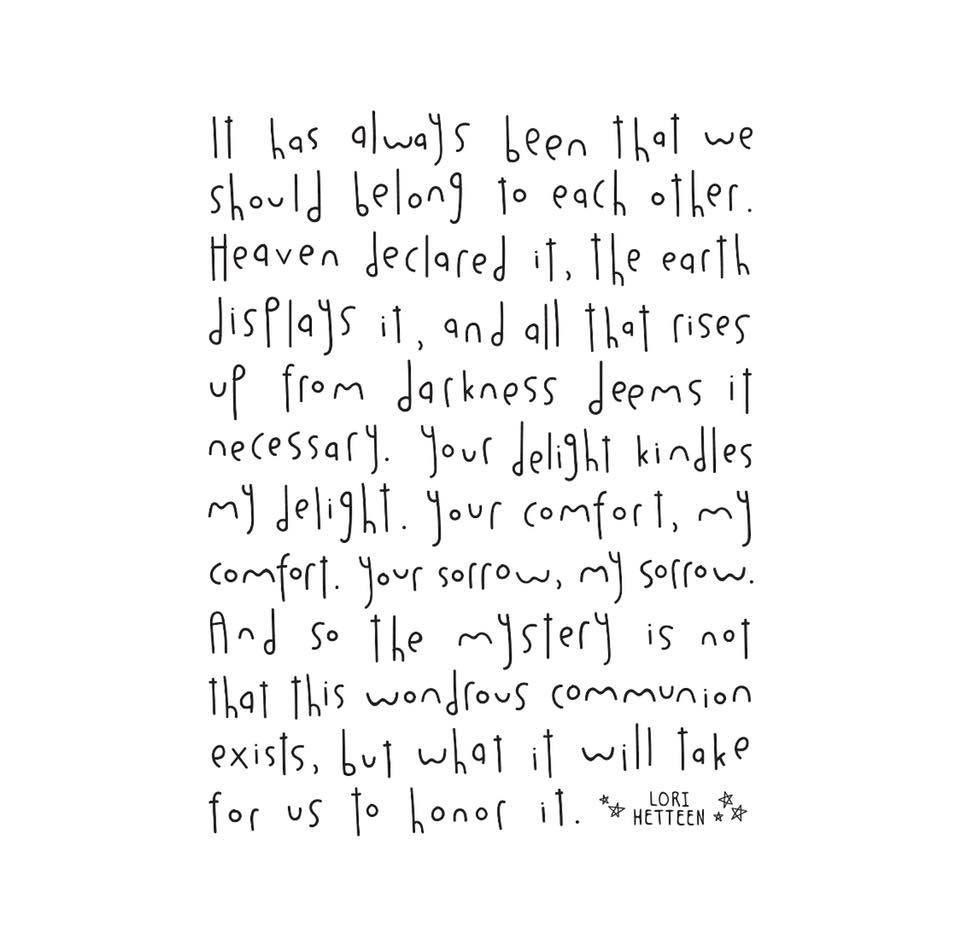 It has always been that we
should belong to each other.
Heaven declared it, the earth
displays it, and all that rises
up from darkness deems it
necessary. Your delight kindles
my delight. Your comfort, my
comfort. Your sorrow, my sorrow.
And so the mystery is not
that this wondrous communion
exists, but what it will take
for us to honor it.
LORI
HETTEEN